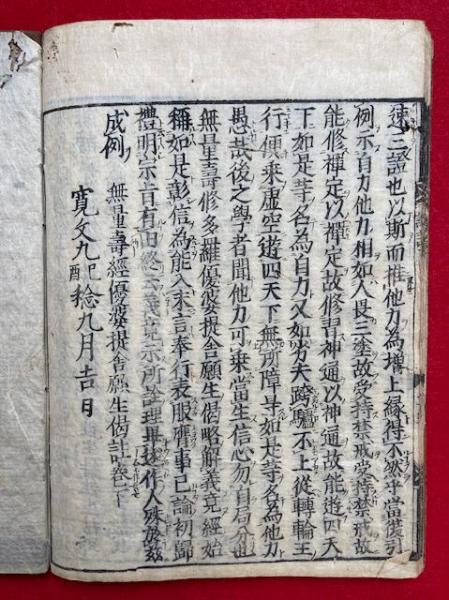 速三證也以斯而推他力為増上縁得不然乎當復引
例示自力他力相如人畏三塗故受持禁戒受持禁戒故
能修禪定以禪定故修習神通以神通故能遊四天
下如是等名為自力又如劣夫跨驢不上從轉輪王
行便乘虚空遊四天下無所障导如是等名為他力
愚哉後之學者聞他力可乘當生信心勿自局分也
無量壽修多羅優婆提舍願生偈略解義竟經始
稱如是彰信為能入末言奉行表服膺事已論初歸
禮明宗旨有由終云義竟示所詮理畢述作人殊於茲
成例
無量壽經優婆提舍願生偈註巻下
寛文九己酉稔九月吉日